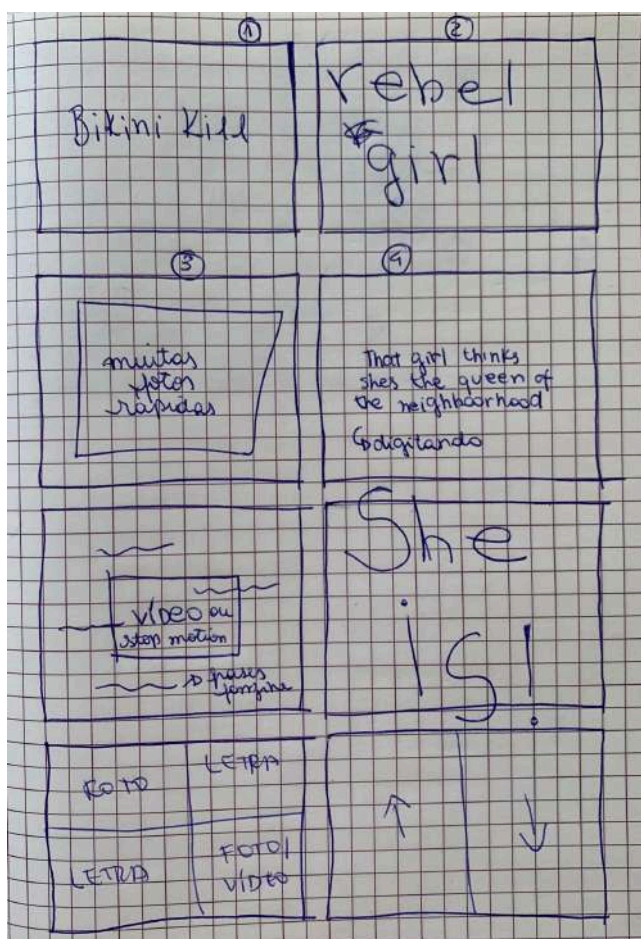 ①
Bikini Kill
②
rebel
girl
③
muitas
fotos
rápidas
④
That girl thinks
shes the queen of
the neighboorhood
↳ digitando
VÍDEO ou
stop motion
→ frases
fanzine
She
is!
FOTO
LETRA
LETRA
FOTO/
VÍDEO
↑
↓